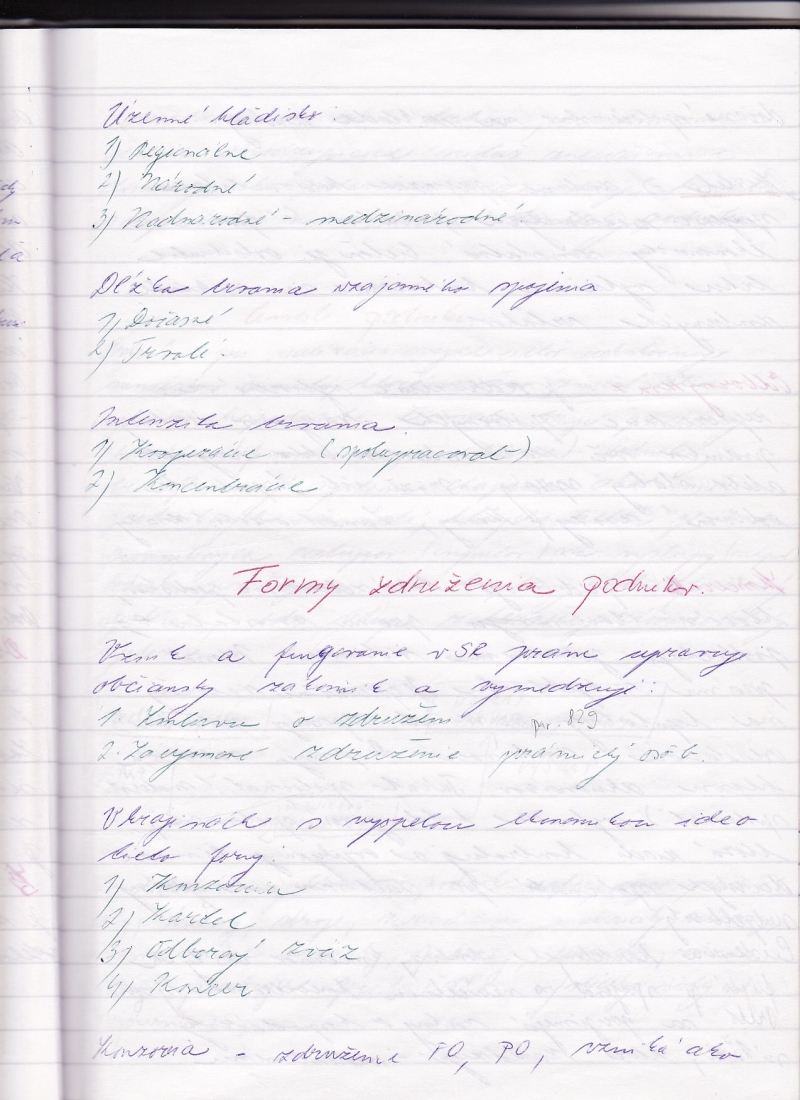 Územné hľadisko:
1) Regionálne
2) Národné
3) Nadnárodné - medzinárodné.
Dĺžka trvania vzájomného spojenia
1) Dočasné
2) Trvalé.
Intenzita trvania.
1) Kooperácie (spolupracovať)
2) Koncentrácie
Formy združenia podnikov.
Vznik a fungovanie v SR právne upravuje
občiansky zákonník a vymedzuje:
1. Zmluvu o združení par. 829
2. Záujmové združenie právnický osôb.
V krajinách s vyspelou ekonomikou ideo
tieto formy:
1) Konzorcia
2) Kartel
3) Odborový zväz
4) Koncer
Konzorcia - združenie FO, PO, vzniká ako